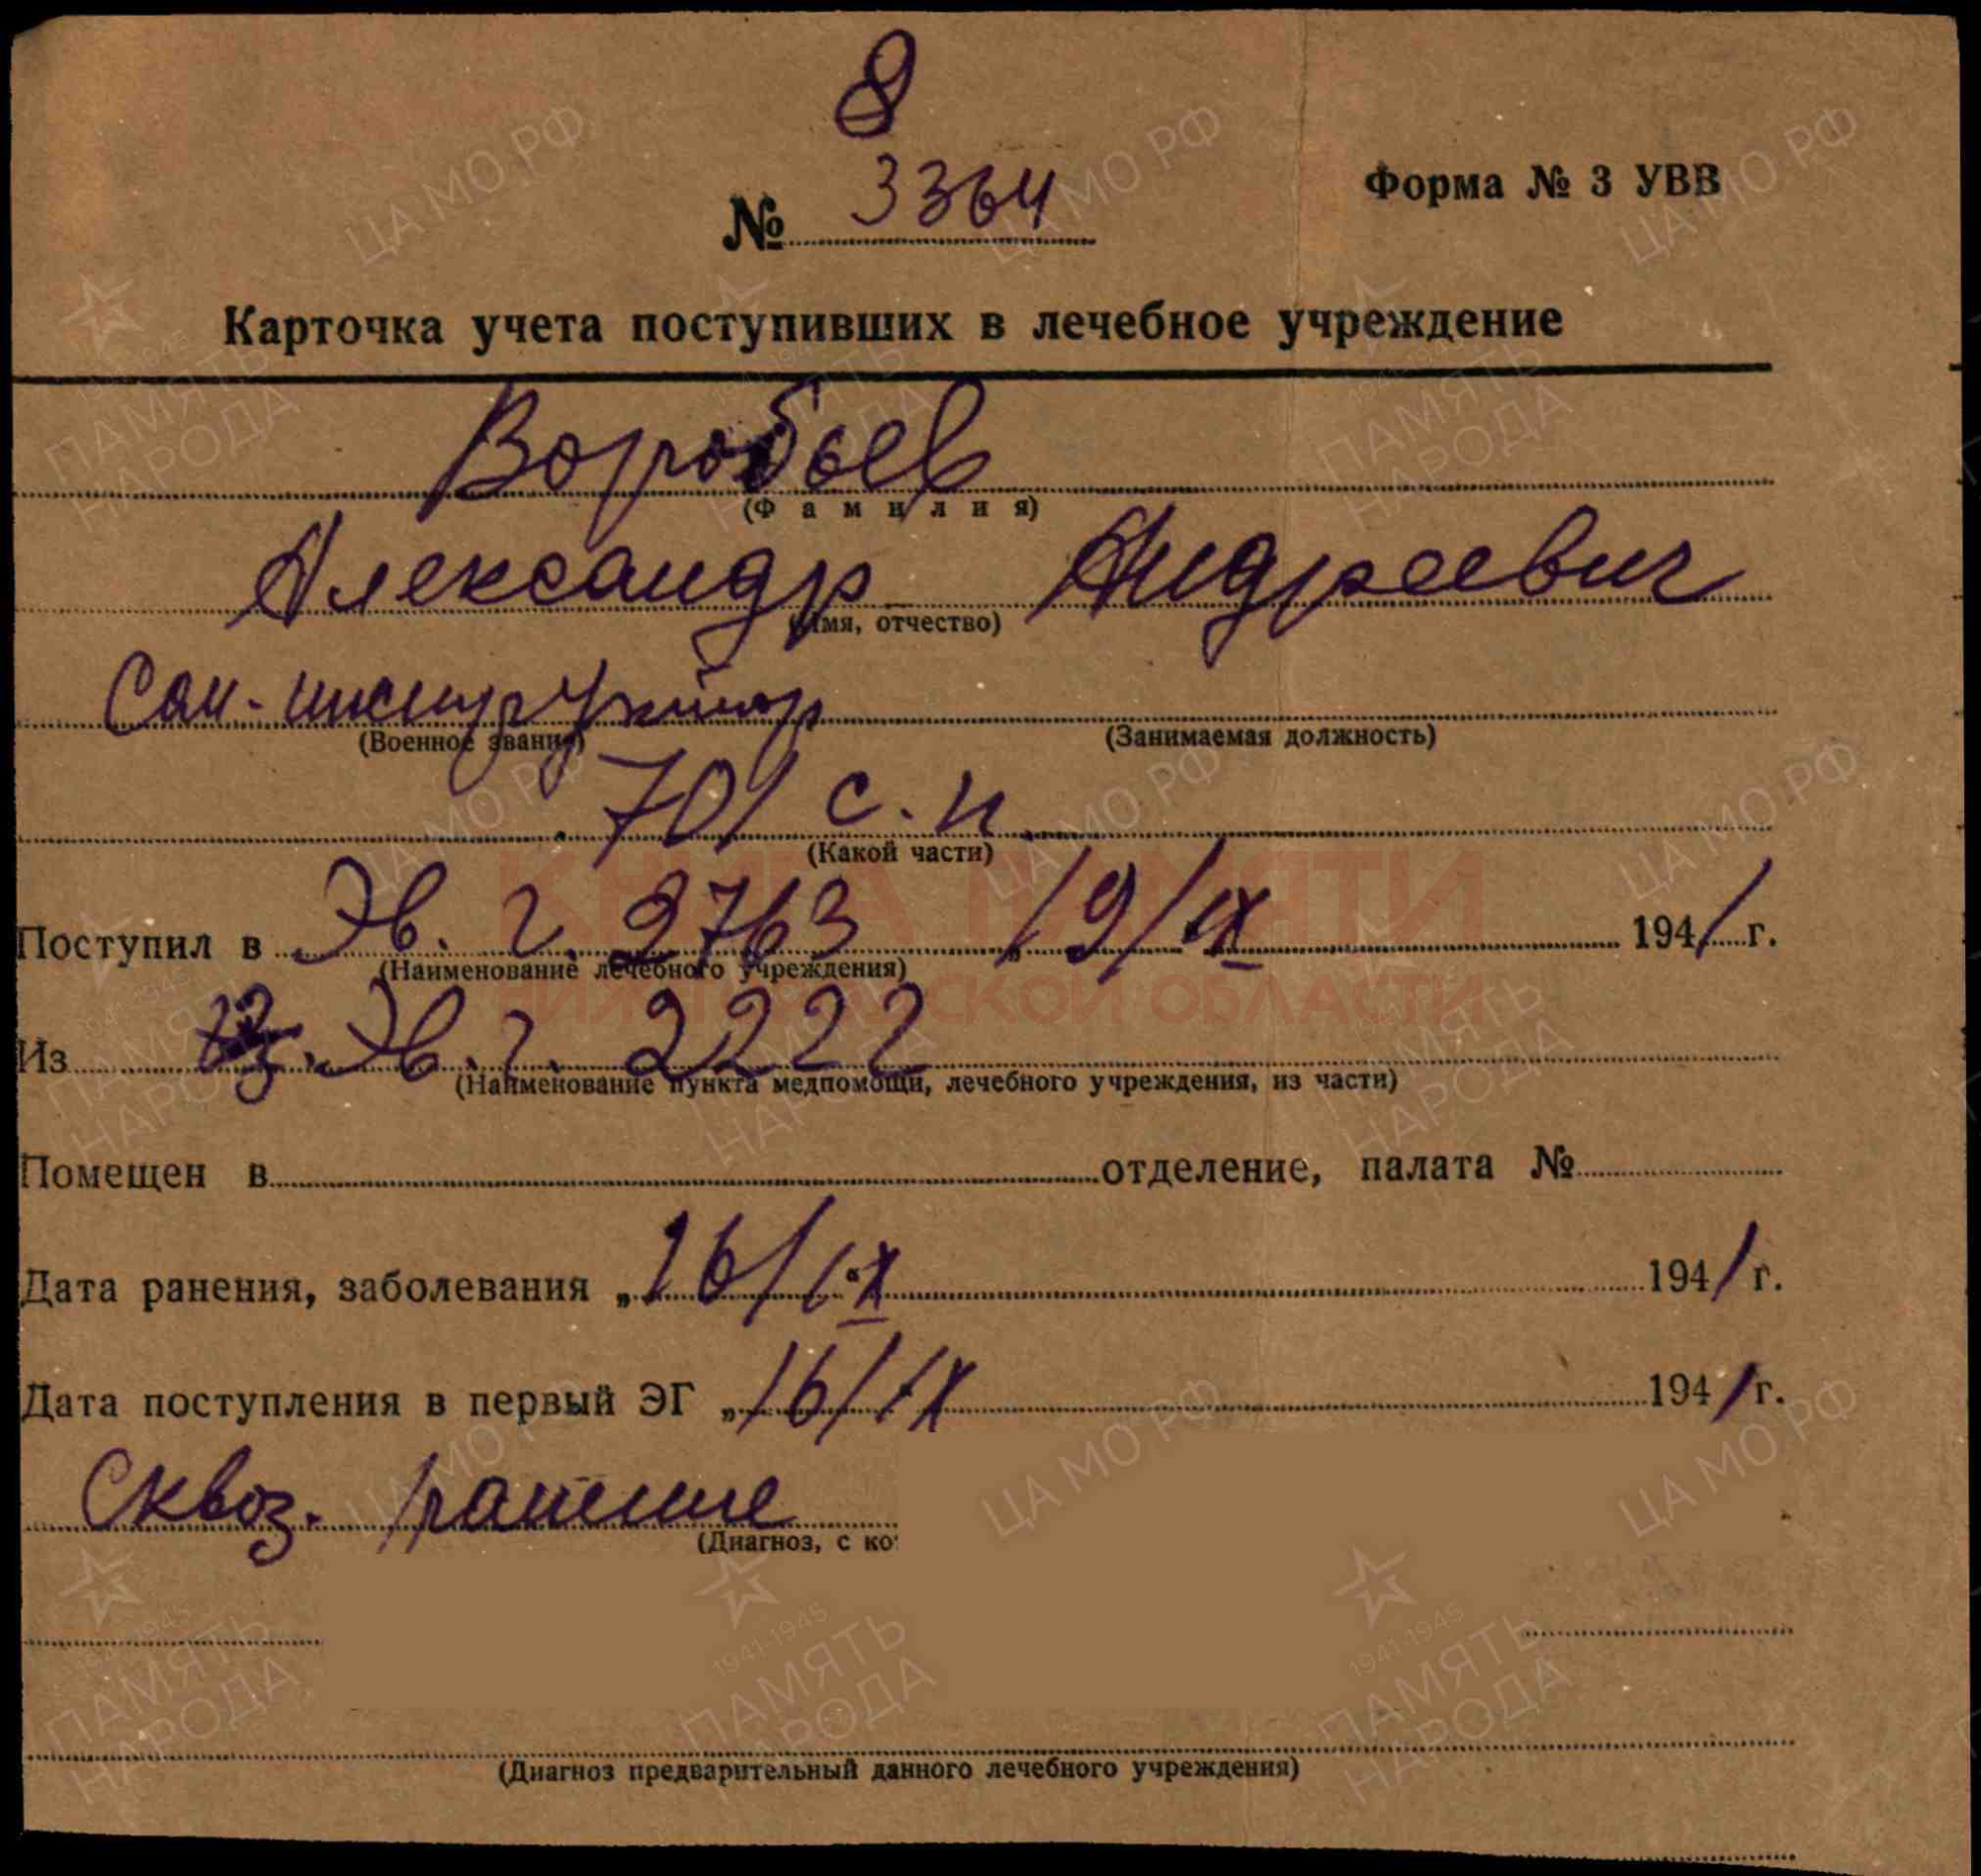 8
№ 3364
Форма № 3 УВВ
Карточка учета поступивших в лечебное учреждение
Воробьев
(Фамилия)
Александр Андреевич
(Имя, отчество)
Сан-инструктор
(Военное звание) (Занимаемая должность)
701 с.п.
(Какой части)
Поступил в Эв. г. 2763 „19/IX 1941 г.
(Наименование лечебного учреждения)
Из Эв. г. 2222
(Наименование пункта медпомощи, лечебного учреждения, из части)
Помещен в отделение, палата №
Дата ранения, заболевания „16/IX 1941 г.
Дата поступления в первый ЭГ „16/IX 1941 г.
Сквоз. ранение
(Диагноз, с ко
(Диагноз предварительный данного лечебного учреждения)
КНИГА ПАМЯТИ
НИЖЕГОРОДСКОЙ ОБЛАСТИ
ЦА МО РФ
1941-1945
ПАМЯТЬ
НАРОДА